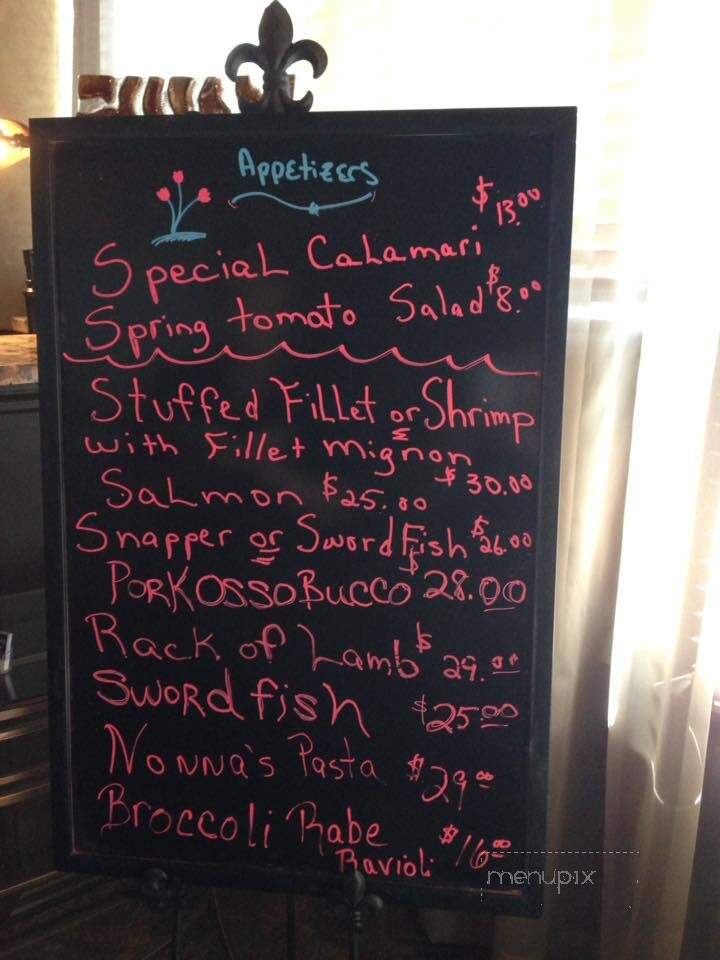 Appetizers
$13.00
Special Calamari
Spring tomato Salad $8.00
Stuffed Fillet or Shrimp
with Fillet mignon
$30.00
Salmon $25.00
Snapper or Swordfish $26.00
Pork Osso Bucco $28.00
Rack of Lamb $29.00
Swordfish $25.00
Nonna's Pasta $29.00
Broccoli Rabe
Ravioli $16.00
menupix